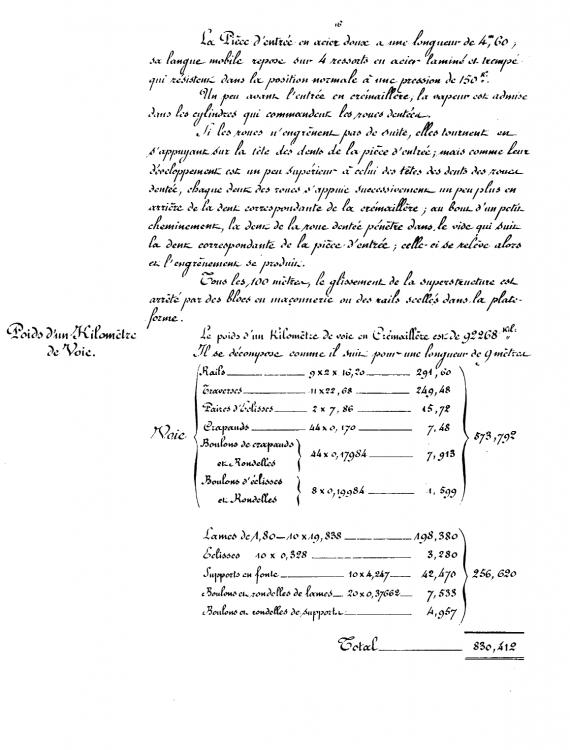 16
La Pièce d'entrée en acier doux a une longueur de 4,m60 ;
sa langue mobile repose sur 4 ressorts en acier laminé et trempé
qui résistent dans la position normale à une pression de 150 k.
Un peu avant l'entrée en crémaillère, la vapeur est admise
dans les cylindres qui commandent les roues dentées.
Si les roues n'engrènent pas de suite, elles tournent en
s'appuyant sur la tête des dents de la pièce d'entrée ; mais comme leur
développement est un peu supérieur à celui des têtes des dents des roues
dentée, chaque dent des roues s'appuie successivement un peu plus en
arrière de la dent correspondante de la crémaillère ; au bout d'un petit
cheminement, la dent de la roue dentée pénètre dans le vide qui suit
la dent correspondante de la pièce d'entrée ; celle-ci se relève alors
et l'engrènement se produit.
Tous les 100 mètres, le glissement de la superstructure est
arrêté par des blocs en maçonnerie ou des rails scellés dans la plate-
forme.
Poids d'un Kilomètre
de Voie.
Le poids d'un Kilomètre de voie en Crémaillère est de 92268 kil.
Il se décompose comme il suit pour une longueur de 9 mètres
Voie
Rails 9x2x16,20 291,60
Traverses 11x22,68 249,48
Paires d'Eclisses 2 x 7,86 15,72
Crapauds 44x0,170 7,48
Boulons de crapauds
et Rondelles 44x0,17984 7,913
Boulons d'éclisses
et Rondelles 8x0,19984 1,599
573,792
Lames de 1,80 — 10x19,838 198,380
Eclisses 10 x 0,328 3,280
Supports en fonte 10x4,247 42,470
Boulons et rondelles de lames 20x0,37662 7,533
Boulons et rondelles de supports 4,957
256,620
Total 830,412